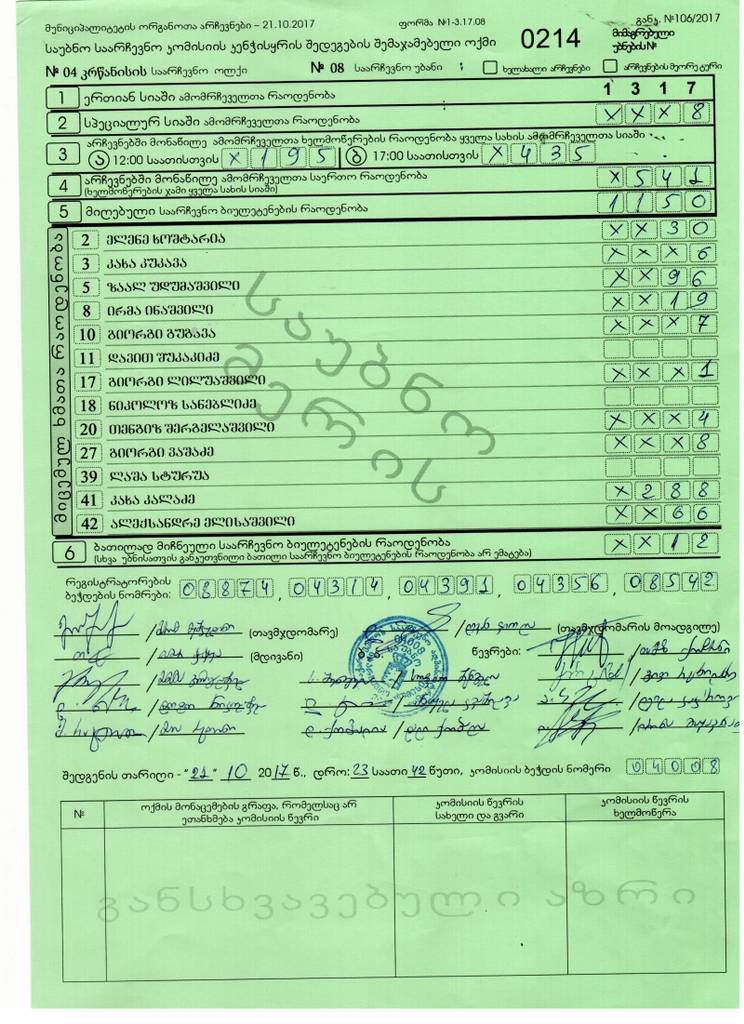 მუნიციპალიტეტის ორგანოთა არჩევნები – 21.10.2017 ფორმა №1-3.17.08 განკ. №106/2017
საუბნო საარჩევნო კომისიის კენჭისყრის შედეგების შემაჯამებელი ოქმი 0214 მიმაგრებული უბნების№
№ 04 კრწანისის საარჩევნო ოლქი № 08 საარჩევნო უბანი ხელახალი არჩევნები არჩევნების მეორე ტური
1 ერთიან სიაში ამომრჩეველთა რაოდენობა 1 3 1 7
2 სპეციალურ სიაში ამომრჩეველთა რაოდენობა X X X 8
არჩევნებში მონაწილე ამომრჩეველთა ხელმოწერების რაოდენობა ყველა სახის ამომრჩეველთა სიაში
3 ა 12:00 საათისთვის X 1 9 5 ბ 17:00 საათისთვის X 4 3 5
4 არჩევნებში მონაწილე ამომრჩეველთა საერთო რაოდენობა X 5 4 1
(ხელმოწერების ჯამი ყველა სახის სიაში)
5 მიღებული საარჩევნო ბიულეტენების რაოდენობა 1 1 5 0
მიცემულ ხმათა რაოდენობა
2 ელენე ხოშტარია X X 3 0
3 კახა კუკავა X X X 6
5 ზაალ უდუმაშვილი X X 9 6
8 ირმა ინაშვილი X X 1 9
10 გიორგი გუგავა X X X 7
11 დავით შუკაკიძე
17 გიორგი ლილუაშვილი X X X 1
18 ნიკოლოზ სანებლიძე
20 თენგიზ შერგელაშვილი X X X 4
27 გიორგი ვაშაძე X X X 8
39 ლაშა სტურუა
41 კახა კალაძე X 2 8 8
42 ალექსანდრე ელისაშვილი X X 6 6
საუბნო
მერის
6 ბათილად მიჩნეული საარჩევნო ბიულეტენების რაოდენობა X X 1 2
(სხვა უბნისათვის განკუთვნილი ბათილი საარჩევნო ბიულეტენების რაოდენობა არ ემატება)
რეგისტრატორების
ბეჭდების ნომრები: 08874, 04314, 04391, 04356, 08542
(თავმჯდომარე) (თავმჯდომარის მოადგილე)
(მდივანი) წევრები:
შედგენის თარიღი - "21" 10 2017 წ., დრო: 23 საათი 42 წუთი, კომისიის ბეჭდის ნომერი 04008
№ ოქმის მონაცემების გრაფა, რომელსაც არ ეთანხმება კომისიის წევრი კომისიის წევრის სახელი და გვარი კომისიის წევრის ხელმოწერა
განსხვავებული აზრი